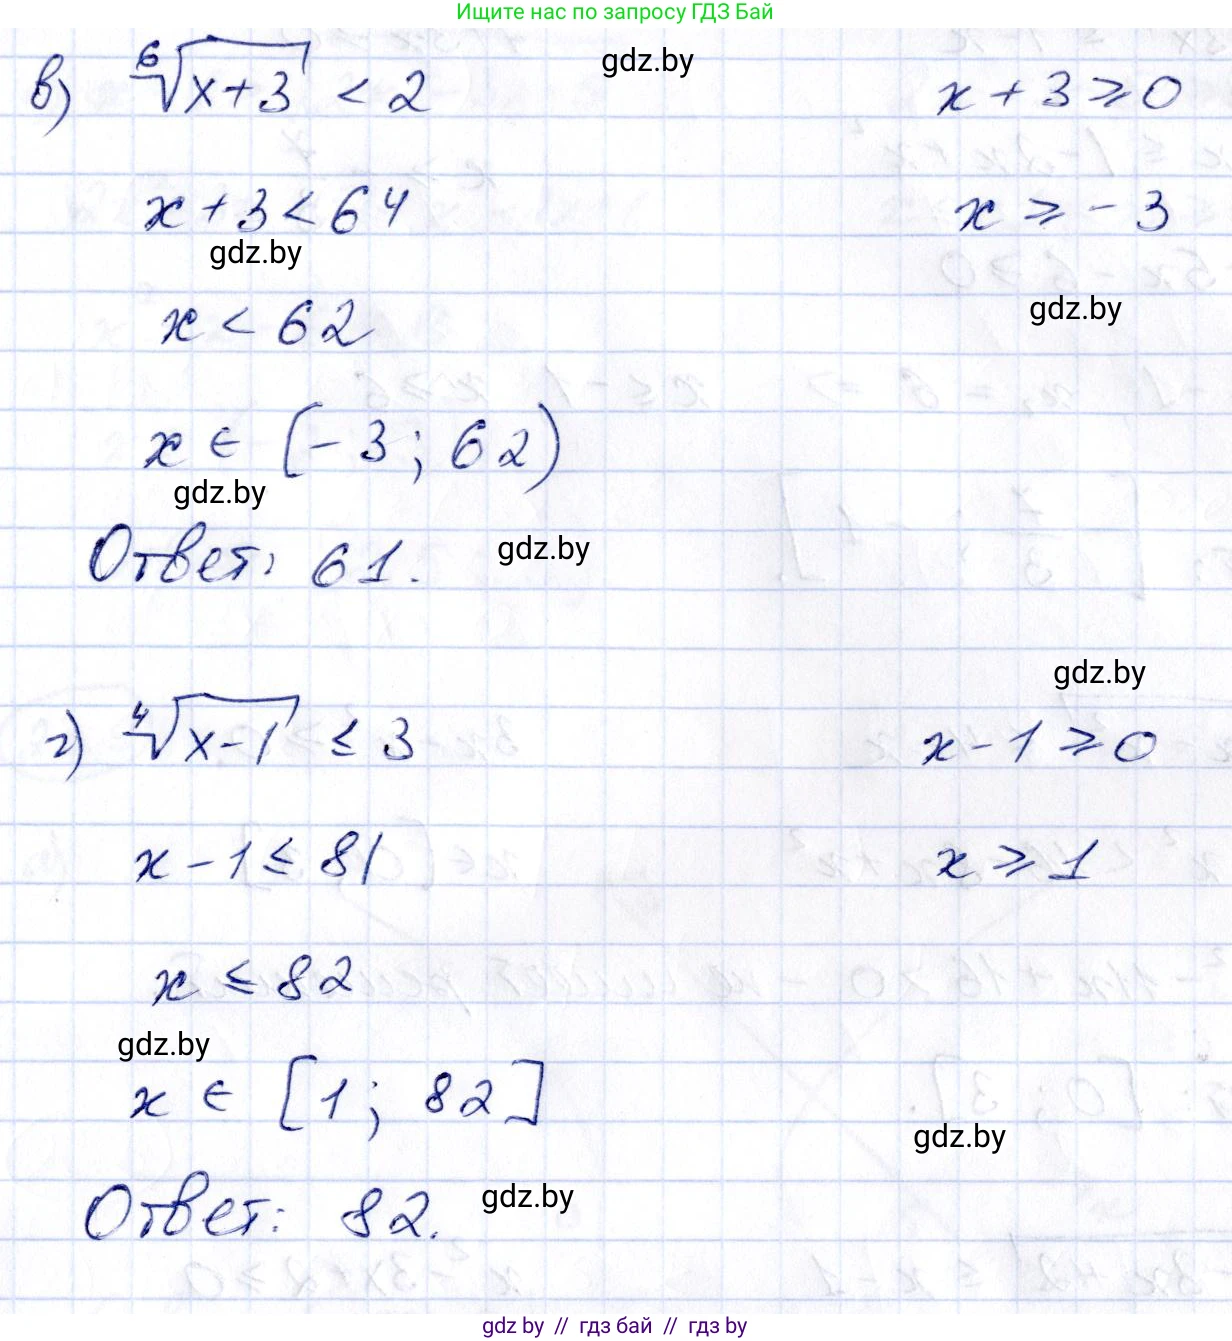 Ищите нас по запросу ГДЗ Бай
в) ⁶√(x+3) < 2    gdz.by    x + 3 ⩾ 0
x + 3 < 64    x ⩾ - 3
gdz.by
x < 62    gdz.by
x ∈ [- 3; 62)
gdz.by
Ответ: 61.    gdz.by
gdz.by
г) ⁴√(x-1) ≤ 3    x - 1 ⩾ 0
x - 1 ≤ 81    x ⩾ 1
x ≤ 82
gdz.by
x ∈ [1; 82]
gdz.by
Ответ: 82.    gdz.by
gdz by // гдз бай // gdz by